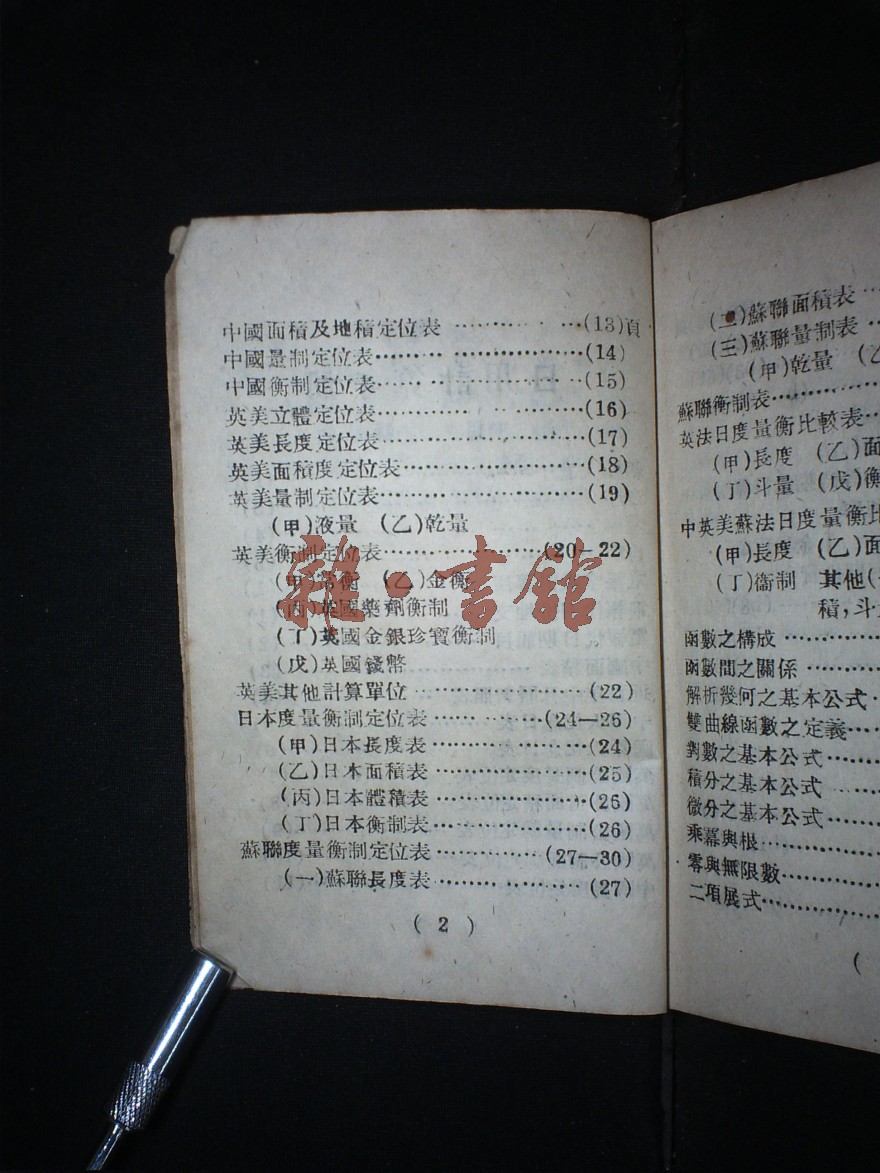 中國面積及地積定位表…………(13)頁
中國量制定位表…………(14)
中國衡制定位表…………(15)
英美立體定位表…………(16)
英美長度定位表…………(17)
英美面積度定位表…………(18)
英美量制定位表…………(19)
(甲)液量 (乙)乾量
英美衡制定位表…………(20—22)
(甲)常衡 (乙)金衡
(丙)英國藥劑衡制
(丁)英國金銀珍寶衡制
(戊)英國錢幣
英美其他計算單位…………(22)
日本度量衡制定位表…………(24—26)
(甲)日本長度表…………(24)
(乙)日本面積表…………(25)
(丙)日本體積表…………(26)
(丁)日本衡制表…………(26)
蘇聯度量衡制定位表…………(27—30)
(一)蘇聯長度表…………(27)
(2)
雜·書館
(二)蘇聯面積表…
(三)蘇聯量制表…
(甲)乾量
蘇聯衡制表…………
英法日度量衡比較表…
(甲)長度 (乙)面
(丁)斗量 (戊)衡
中英美蘇法日度量衡比
(甲)長度 (乙)面
(丁)衡制 其他
積,斗
函數之構成…………
函數間之關係…………
解析幾何之基本公式…
雙曲線函數之定義…
對數之基本公式…………
積分之基本公式…………
微分之基本公式…………
乘冪與根…………
零與無限數…………
二項展式…………